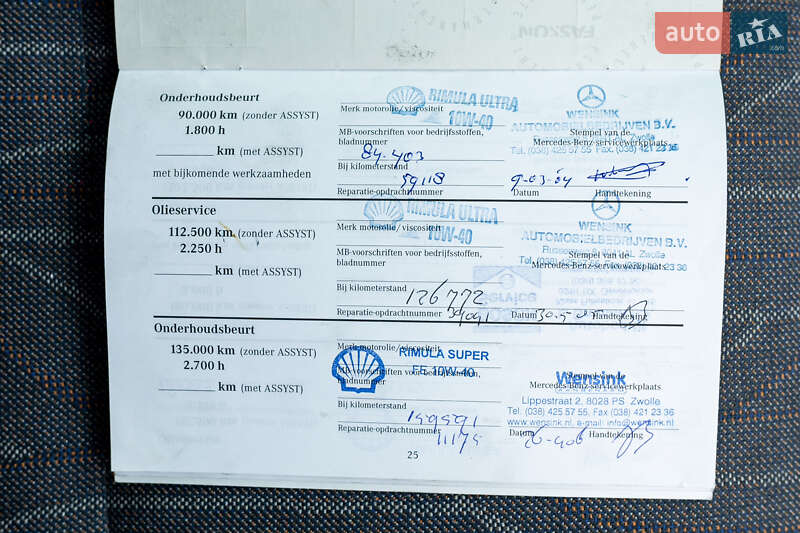 auto RIA .com
Onderhoudsbeurt
90.000 km (zonder ASSYST)
1.800 h
km (met ASSYST)
met bijkomende werkzaamheden
RIMULA ULTRA
Merk motorolie/viscositeit
10W-40
MB-voorschriften voor bedrijfsstoffen,
bladnummer
Bij kilometerstand
84-403
Reparatie-opdrachtnummer
59118
WENSINK
AUTOMOBIELBEDRIJVEN B.V.
Zwolle
Stempel van de
Mercedes-Benz-servicewerkplaats
Tel. (038) 425 57 55 Fax. (038) 421 23 36
9-03-04
Datum
Handtekening
Olieservice
112.500 km (zonder ASSYST)
2.250 h
km (met ASSYST)
RIMULA ULTRA
Merk motorolie/viscositeit
10W-40
MB-voorschriften voor bedrijfsstoffen,
bladnummer
Bij kilometerstand
126772
Reparatie-opdrachtnummer
WENSINK
AUTOMOBIELBEDRIJVEN B.V.
Zwolle
Stempel van de
Mercedes-Benz-servicewerkplaats
Datum
Handtekening
Onderhoudsbeurt
135.000 km (zonder ASSYST)
2.700 h
km (met ASSYST)
Merk motorolie/viscositeit
RIMULA SUPER
MB-voorschriften voor bedrijfsstoffen,
FE 10W-40
bladnummer
Bij kilometerstand
Reparatie-opdrachtnummer
11175
Stempel van de
Wensink
Mercedes-Benz-servicewerkplaats
Lippestraat 2, 8028 PS Zwolle
Tel. (038) 425 57 55, Fax (038) 421 23 36
www.wensink.nl, e-mail: info@wensink.nl
Datum
Handtekening
25